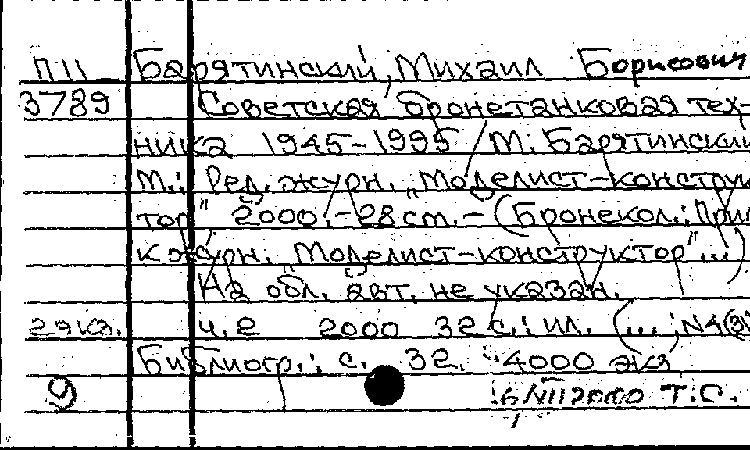 П11 Барятинский, Михаил Борисович
3789 Советская бронетанковая тех-
ника 1945-1995 / М. Барятинский
М.: Ред. журн. "Моделист-конструк
тор" 2000.-28 см.- (Бронекол.: Прил
к журн. "Моделист-конструктор"...)
На обл. авт. не указан.
29 ка. ч. 2 2000 32 с.: ил. (... ; N4(3
Библиогр.: с. 32. 4000 экз
9 2000 Т.С.